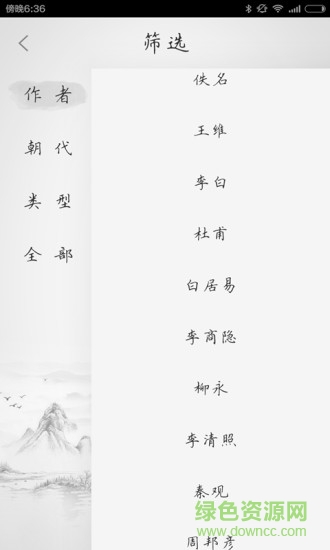 傍晚6:36
筛选
作者
朝代
类型
全部
佚名
王维
李白
杜甫
白居易
李商隐
柳永
李清照
秦观
周邦彦
绿色资源网
www.downcc.com